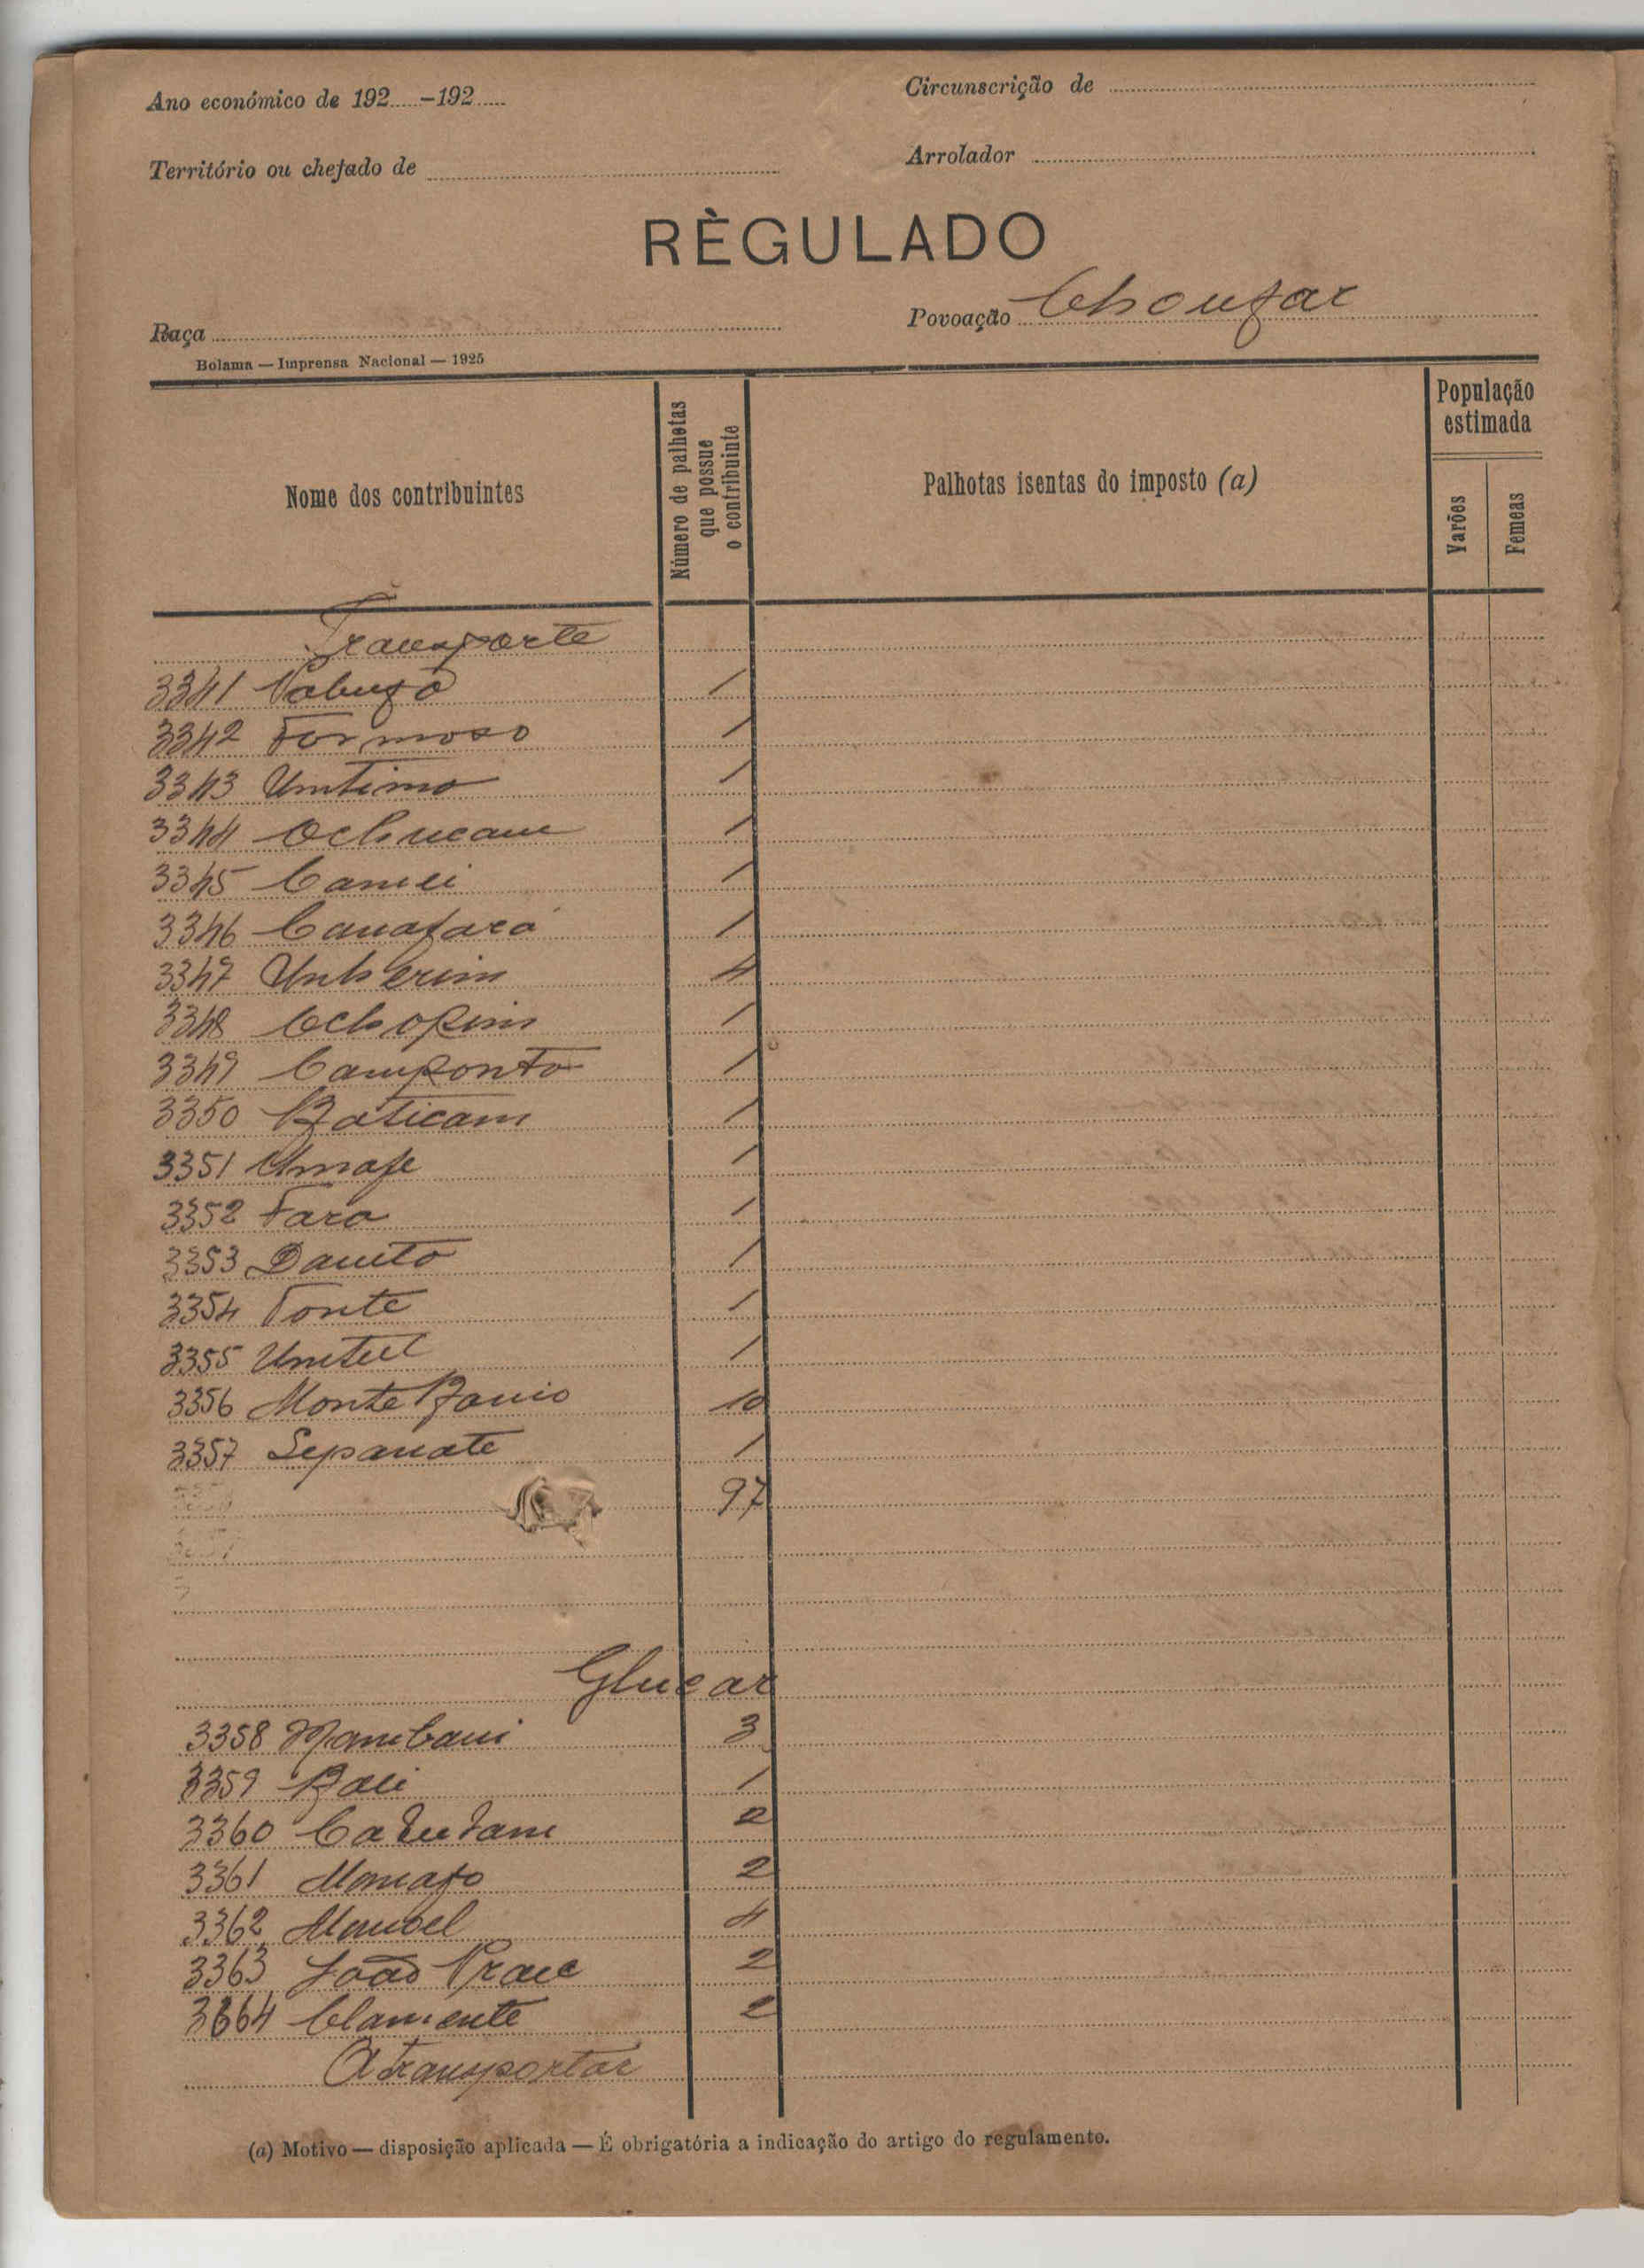 Ano económico de 192.....-192.....
Circunscrição de
Território ou chefado de
Arrolador
RÈGULADO
Raça
Povoação Choufar
Bolama — Imprensa Nacional — 1925
Nome dos contribuintes
Número de palhotas que possue o contribuinte
Palhotas isentas do imposto (a)
População estimada
Varões
Femeas
Transporte
3341 Nabufo 1
3342 Formoso 1
3343 Umtimo 1
3344 Ochucam 1
3345 Camei 1
3346 Canafará 1
3347 4
3348 1
3349 Camponto 1
3350 Baticam 1
3351 Umafe 1
3352 Faro 1
3353 Daneto 1
3354 Tonte 1
3355 1
3356 Monte Banio 10
3357 Sepanate 1
97
Glucar
3358 3
3359 Bali 1
3360 2
3361 Momafo 2
3362 Manoel 4
3363 João 2
3364 Clamente 2
A transportar
(a) Motivo — disposição aplicada — É obrigatória a indicação do artigo do regulamento.